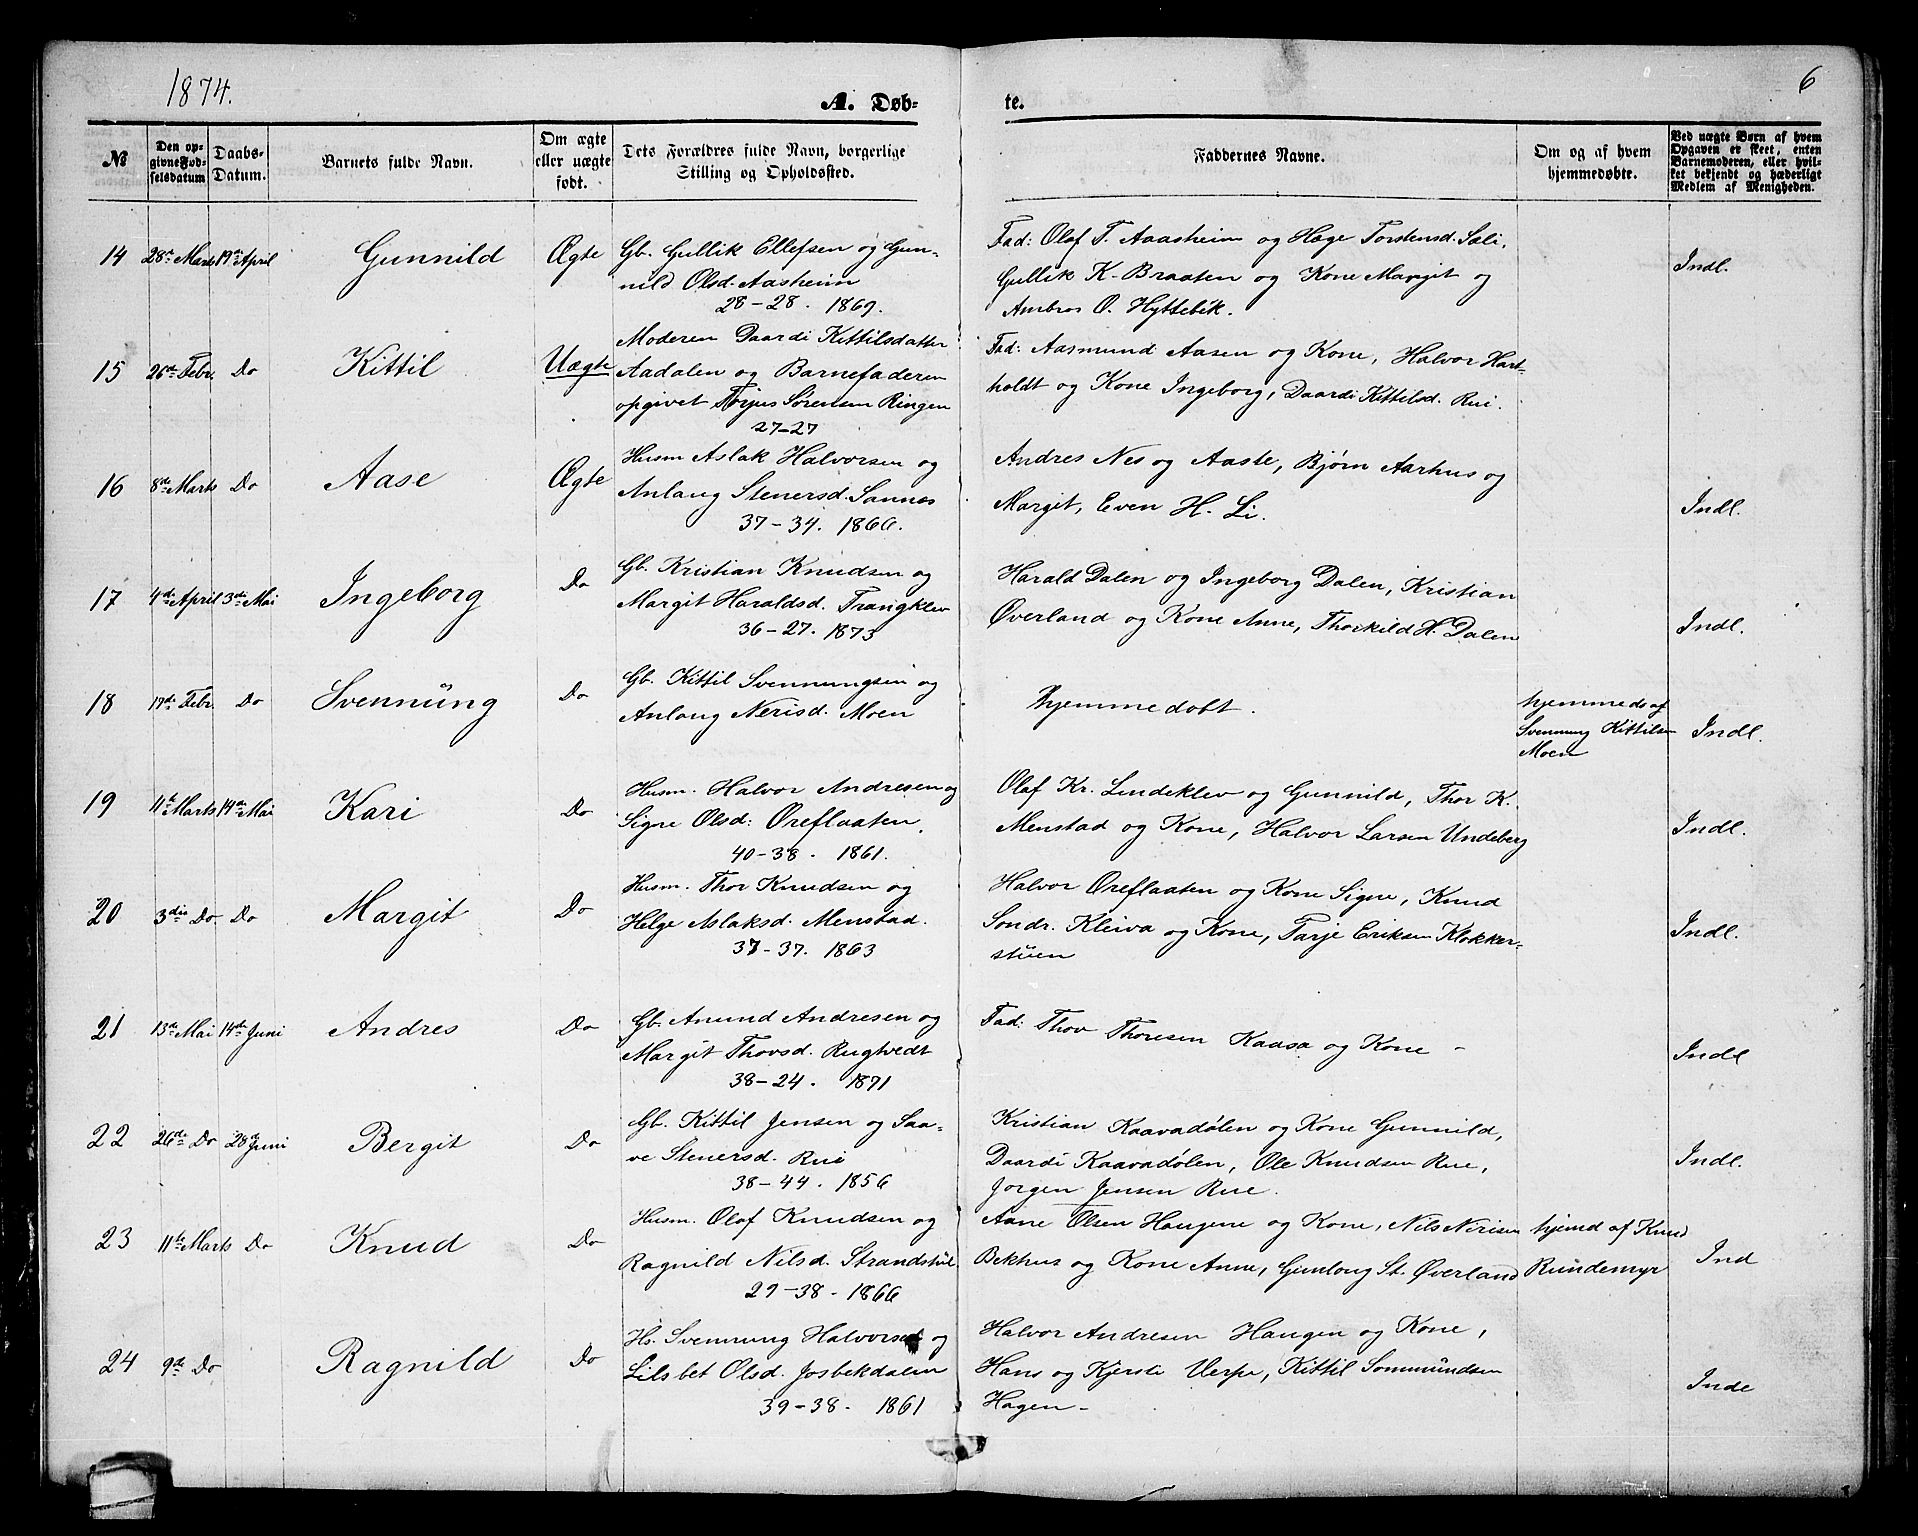 1874.
A. Døb-
te.
6
№
Den op-
givne Fød-
selsdatum
Daabs-
Datum.
Barnets fulde Navn.
Om ægte
eller uægte
født.
Dets Forældres fulde Navn, borgerlige
Stilling og Opholdssted.
Faddernes Navne.
Om og af hvem
hjemmedøbte.
Ved uægte Børn af hvem
Opgaven er skeet, enten
Barnemoderen, eller hvil-
ket bekjendt og hæderligt
Medlem af Menigheden.
14 28de Marts 19de April Gunnild Ægte Gb. Gullik Ellefsen og Gun-
nild Olsd. Aasheim
28-28. 1869.
Fad: Olaf T. Aaasheim og Hæge Torstensd. Sæli,
Gullik K. Braaten og Kone Margit og
Ambros O. Hyttebék.
Indl.
15 26de Febr. Do Kittil Uægte
Moderen Daardi Kittilsdatter
Aadalen og Barnefaderen
opgivet Torjus Sørensen Ringen
27-27
Fad: Aasmund Aasen og Kone, Halvor Hart-
holdt og Kone Ingeborg, Daardi Kittilsd. Rui.
16 8de Marts Do Aase Ægte
Husm Aslak Halvorsen og
Anlaug Stenersd. Sannes
37-34. 1866.
Andres Nes og Aaste, Bjørn Aarhus og
Margit, Even H. Li.
Indl.
17 4de April 3de Mai Ingeborg Do
Gb. Kristian Knudsen og
Margit Haraldsd. Trangklev
36-27. 1873
Harald Dalen og Ingeborg Dalen, Kristian
Øverland og Kone Anne, Thorkild H. Dalen
Indl.
18 17de Febr. Do Svennüng Do
Gb. Kittil Svennungsen og
Anlaug Nerisd. Moen
Hjemmedøbt.
hjemmed af
Svennung Kittilsen
Moen
Indl.
19 4de Marts 14de Mai Kari Do
Husm. Halvor Andresen og
Signe Olsd: Øreflaaten,
40-38. 1861.
Olaf Kr. Lindeklev og Gunnild, Thor K.
Menstad og Kone, Halvor Larsen Undeberg
Indl.
20 3die Do Do Margit Do
Husm. Thor Knudsen og
Helge Aslaksd. Menstad.
37-37. 1863
Halvor Øreflaaten og Kone Signe, Knud
Sondr. Kleiva og Kone, Tarje Eriksen Klokker-
stüen
Indl.
21 13de Mai 14de Juni Andres Do
Gb. Anund Andresen og
Margit Thovsd. Rugtvedt
38-24. 1871
Fad: Thov Thovesen Kaasa og Kone -
Indl
22 26de Do 28de Juni Bergit Do
Gb. Kittil Jensen og Saa-
ve Stenersd. Rui
38-44. 1856
Kristian Kaavadølen og Kone Gunnild,
Daardi Kaavadølen, Ole Knudsen Rue,
Jørgen Jensen Rue.
Indl.
23 11te Marts Do Knud Do
Husm. Olaf Knudsen og
Ragnild Nilsd. Strandstül
29-38. 1866
Aane Olsen Haugene og Kone, Nils Nirisen
Bekhus og Kone Anne, Gunlaug St. Øverland
hjemd af Knud
Rundemyr
Ind
24 9de Do Ragnild Do
Hs. Svennung Halvorsen og
Lilsbet Olsd. Josbekdalen
39-38. 1861
Halvor Andresen Haugen og Kone,
Hans og Kjersti Verpe, Kittil Sommündsen
Hagen-
Inde